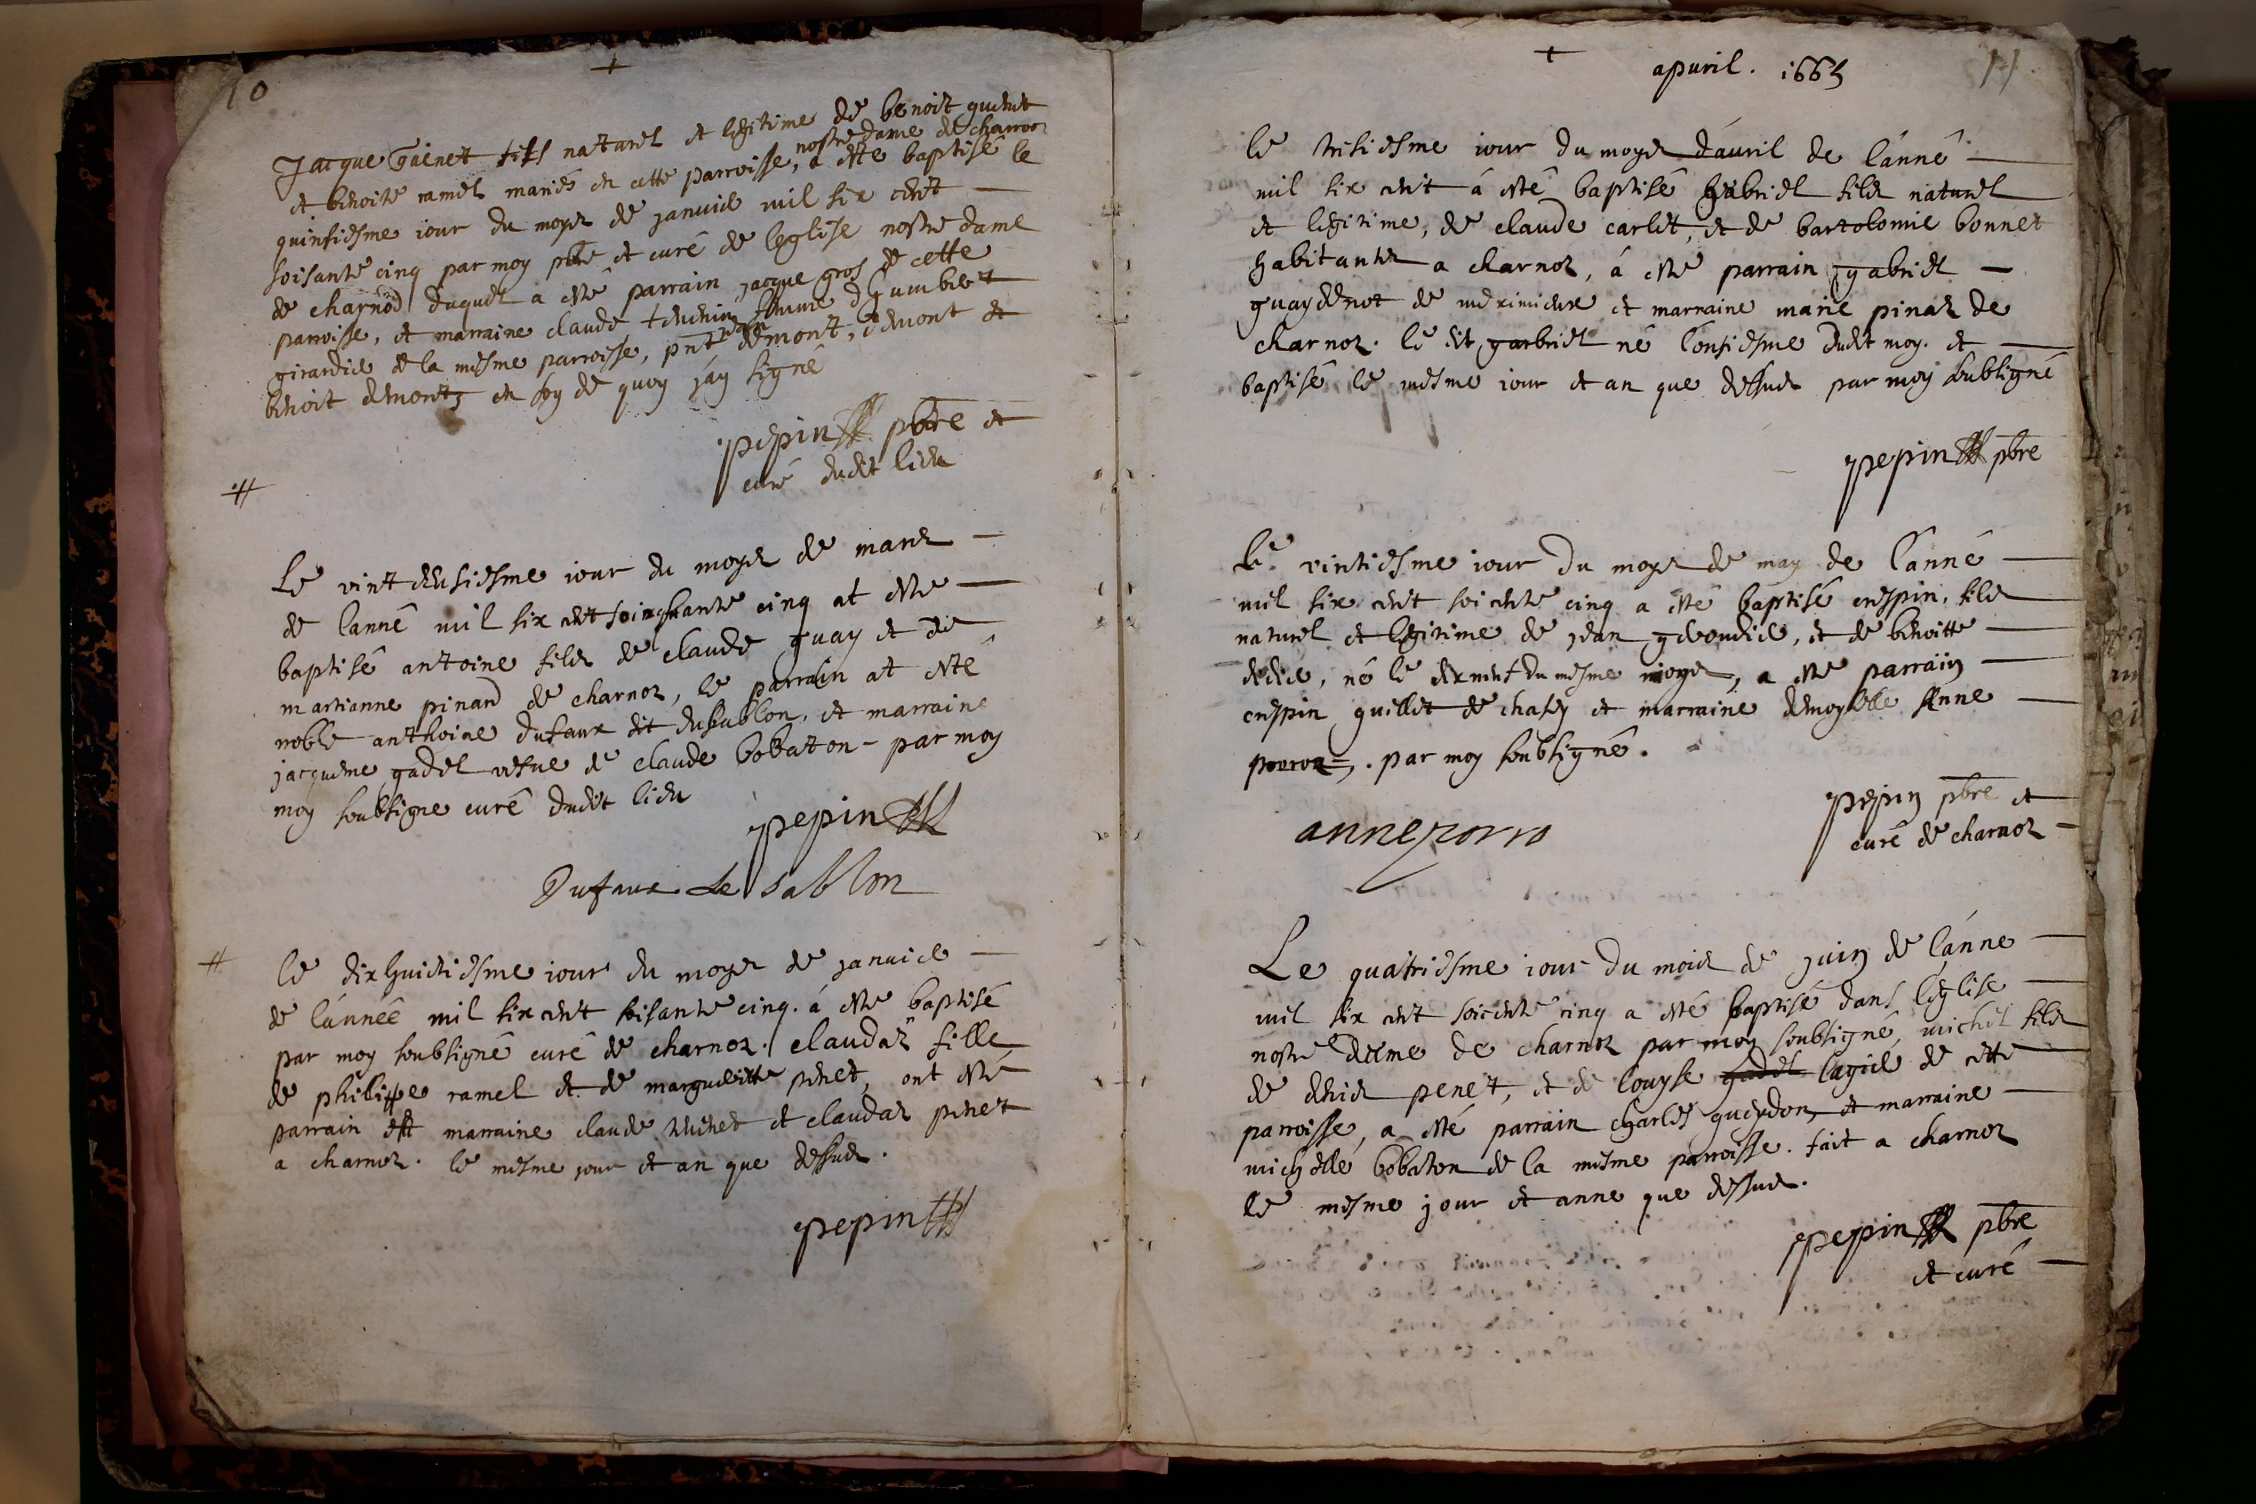 10
+
Jacque Guenet fils naturel et legitime de benoit guenet
nostre dame de charnoz
et benoite ramel mariés en cette parroisse, a este baptisé le
quinsiesme iour du moys de januier mil six cent
soisante cinq par moy pbre et curé de leglise nostre dame
de charnod duquel a esté parrain jacque gros de cette
parroisse, et marraine claude femme d humbert
girardier de la mesme parroisse, pnt jean demont, demont et
benoit demont, en foy de quoy jáy signé
pepin pbre et
curé dudit lieu
Le vint deusiesme iour du moys de mars
de lanné mil six cent soixante cinq at esté
baptisé antoine filz de claude guay et de
martianne pinard de charnoz, le parrain at esté
noble anthoine dufaux dit dusablon, et marraine
jacqueme gadel vefue de claude bobaton - par moy
moy soubsigne curé dudit lieu
pepin
Dufaux Le Sablon
le dix huictiesme iour du moys de januier
de lánnéé mil six cent soisante cinq. á esté baptisé
par moy soubsigné curé de charnoz. claudaz fille
de philippe ramel et de margueritte penet, ont esté
parrain et marraine claude et claudaz penet
a charnoz. le mesme jour et an que dessus.
pepin
+
apuril. 1665
11
le tresiesme iour du moys dáuril de lánné
mil six cent á esté baptisé gabriel filz naturel
et legitime, de claude carlet, et de bartolomie bonnet
habitants a charnoz, á esté parrain gabriel
guaydenot de meximieux et marraine marie pinaz de
charnoz. le dit gabriel né lónsiesme dudit moy. et
baptisé le mesme iour et an que dessus par moy soubsigné
pepin pbre
Le vintiesme iour du moys de may de lánné
mil six cent soicente cinq a esté baptisé crespin, filz
naturel et legitime de jean, et de benoitte
né le du mesme moys, a esté parrain
crespin guillet de chasey et marraine demoyselle Anne
porroz, . par moy soubsigné.
anne porro
pepin pbre et
curé de charnoz
Le quatriesme iour du mois de juin de lánne
mil six cent soicente cinq a esté baptisé dans léglise
nostre deme de charnoz par moy soubsigné, michel filz
de denis penet, et de louyse gadel lagier de cette
parroisse, a esté parrain charles gueydon, et marraine
michelle bobaton de la mesme parroisse. fait a charnoz
le mesme jour et anne que dessus.
pepin pbre
et curé